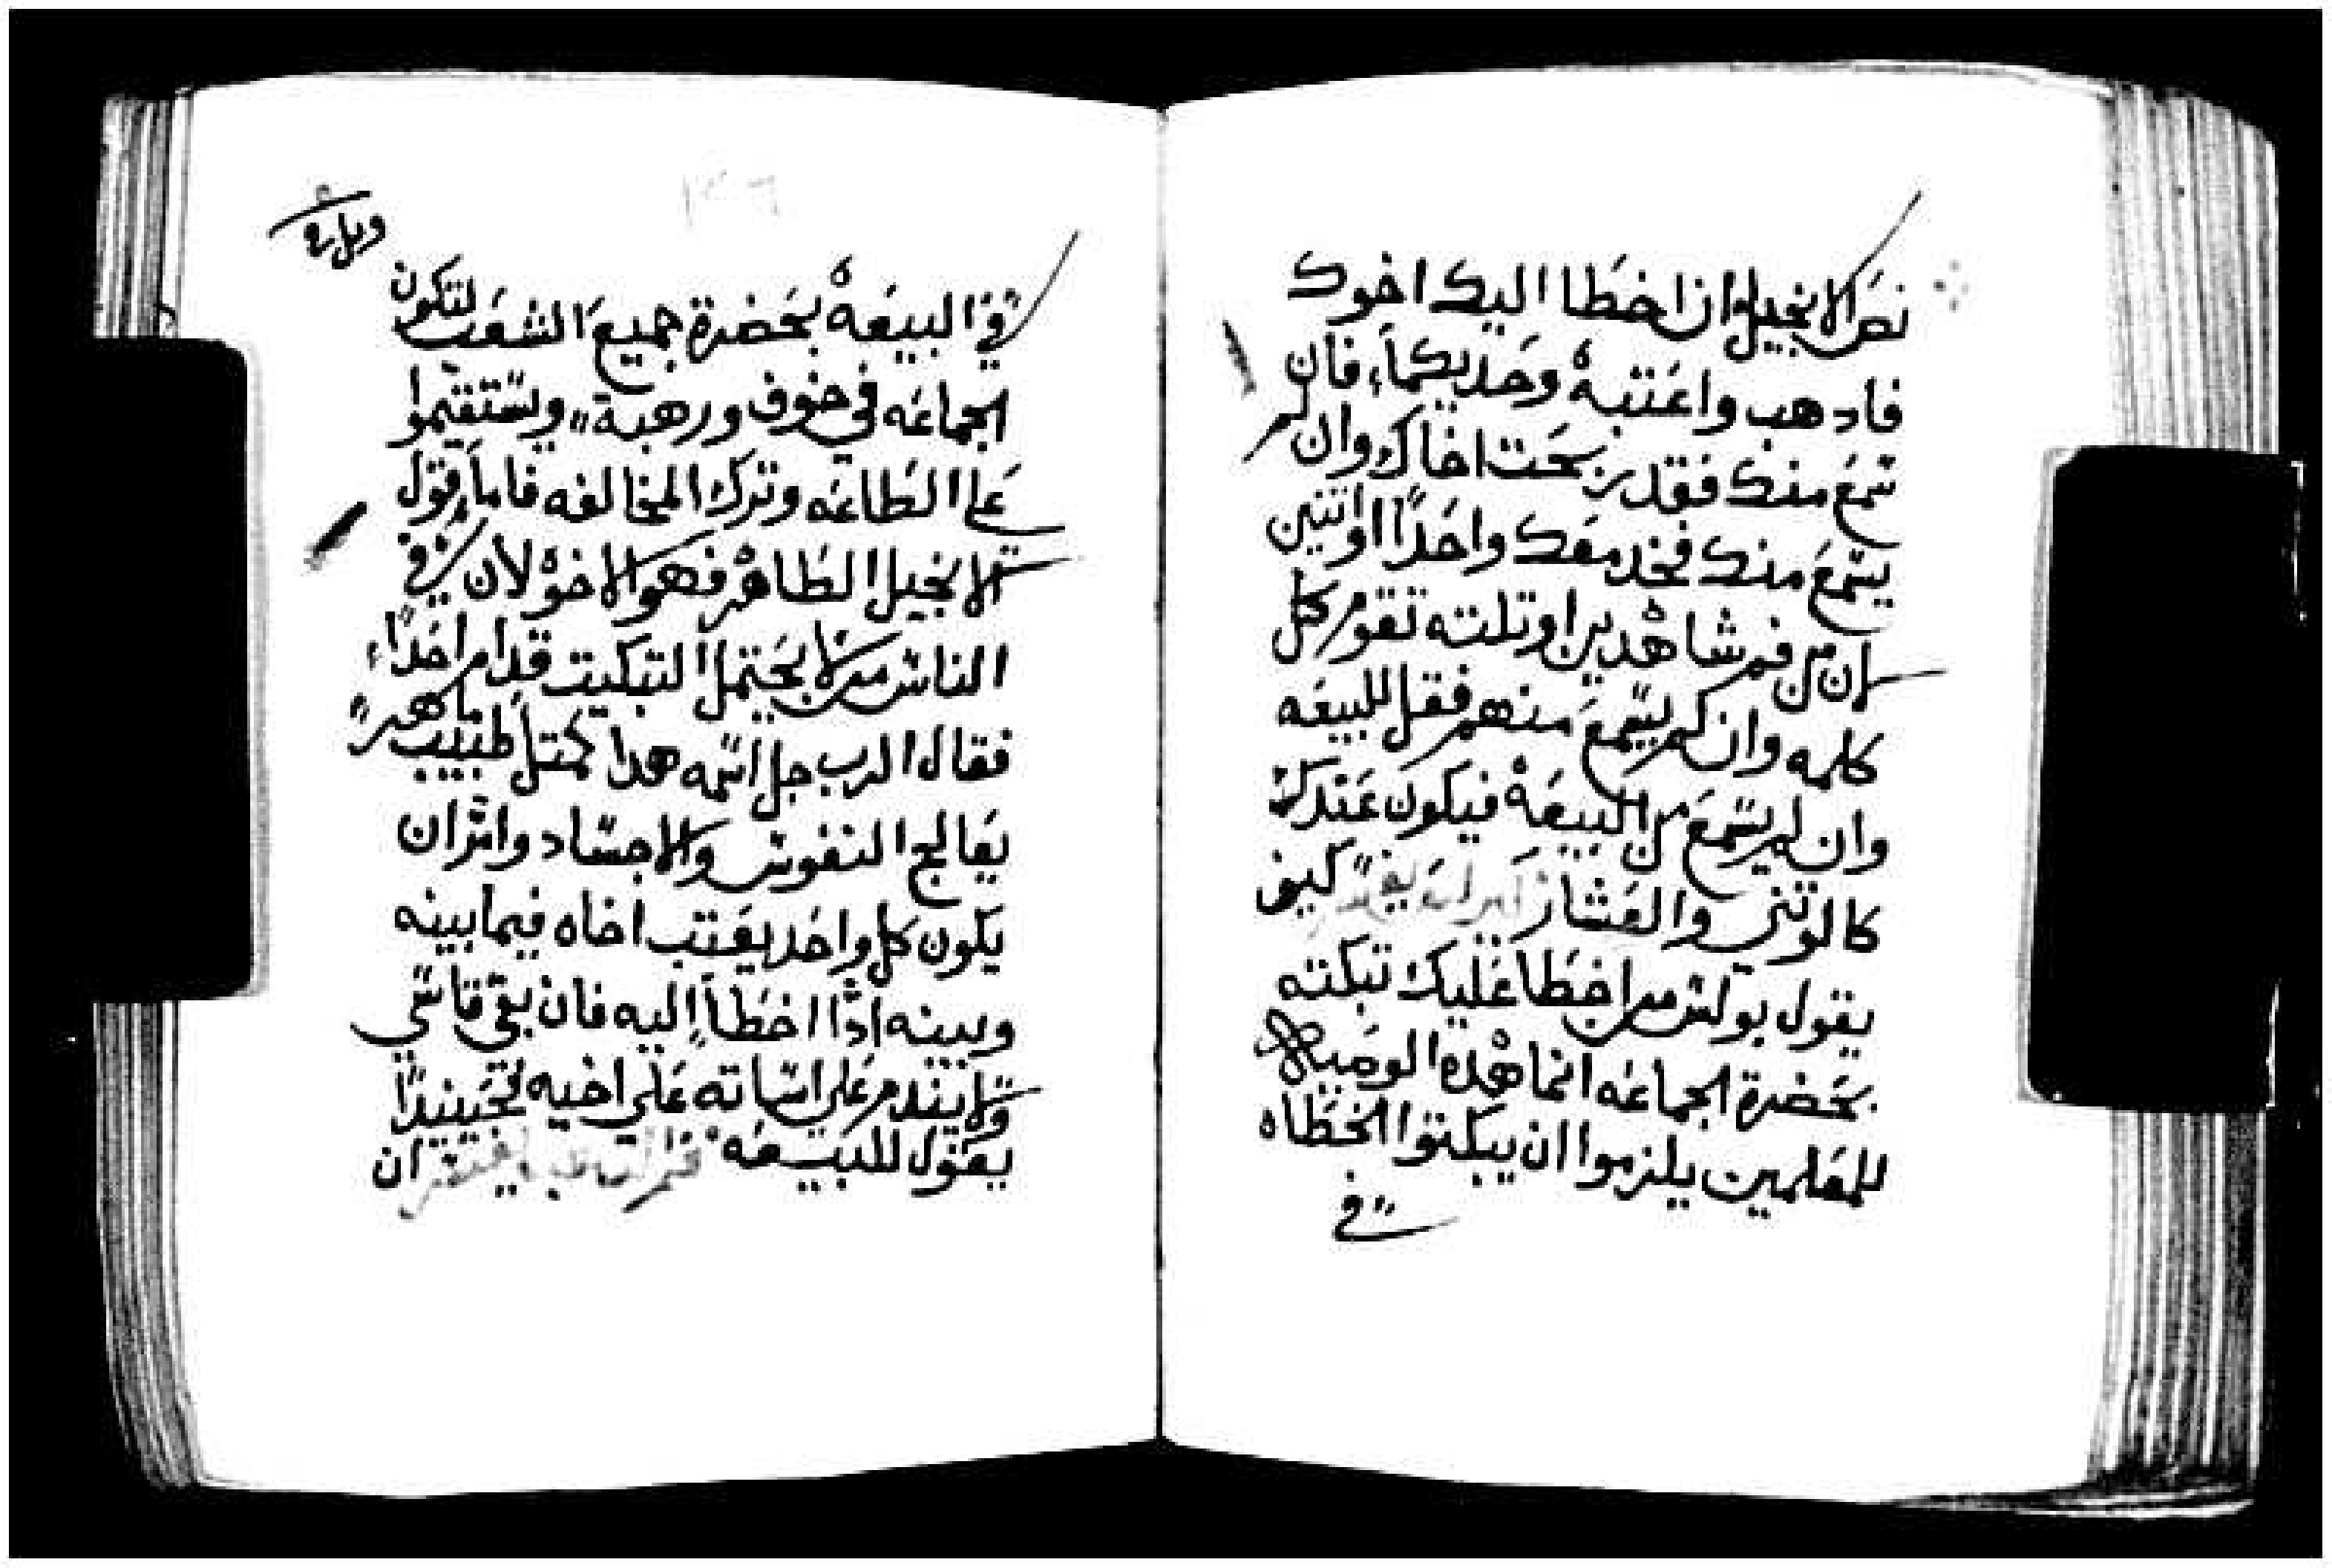 نص الانجيل وان اخطا اليك اخوك
فادهب واعتبه وحديكما، فان
سمع منك فقد ربحت اخاك وان لم
يسمع منك فخد معك واحدًا او اتنين
لان من فم شاهدين او تلته تقوم كل
كلمه وان لم يسمع منهم فقل للبيعه
وان لم يسمع من البيعه فيكون عندك
كالوتني والعشار كيف
يقول بولس من اخطا عليك تبكته
بحضرة الجماعه انما هده الوصيه
للمعلمين يلزموا ان يبكتوا الخطاه
في
في البيعه بحضرة جميع الشعب لتكون
الجماعه في خوف ورهبة،، ويستقيموا
على الطاعه وترك المخالفه فاما قول
الانجيل الطاهر فهو الاخوه لان في
الناس من لا يحتمل التبكيت قدام احدًا،
فقال الرب جل اسمه هدا كمتل طبيب ماهر
يعالج النفوس والاجساد وامر ان
يكون كل واحد يعتب اخاه فيما بينه
وبينه ادا اخطا اليه فان بقى قاسي
ولا يندم على اساته على اخيه فحينيدًا
يقول للبيعه ان